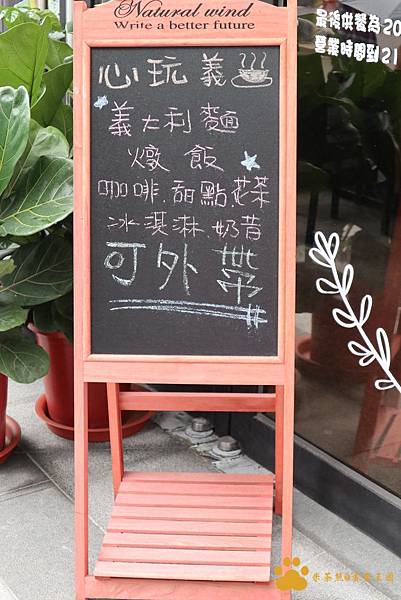 Natural wind
Write a better future
心玩義
義大利麵
燉飯
咖啡.甜點花茶
冰淇淋.奶昔
可外帶
最後供餐為20
營業時間到21